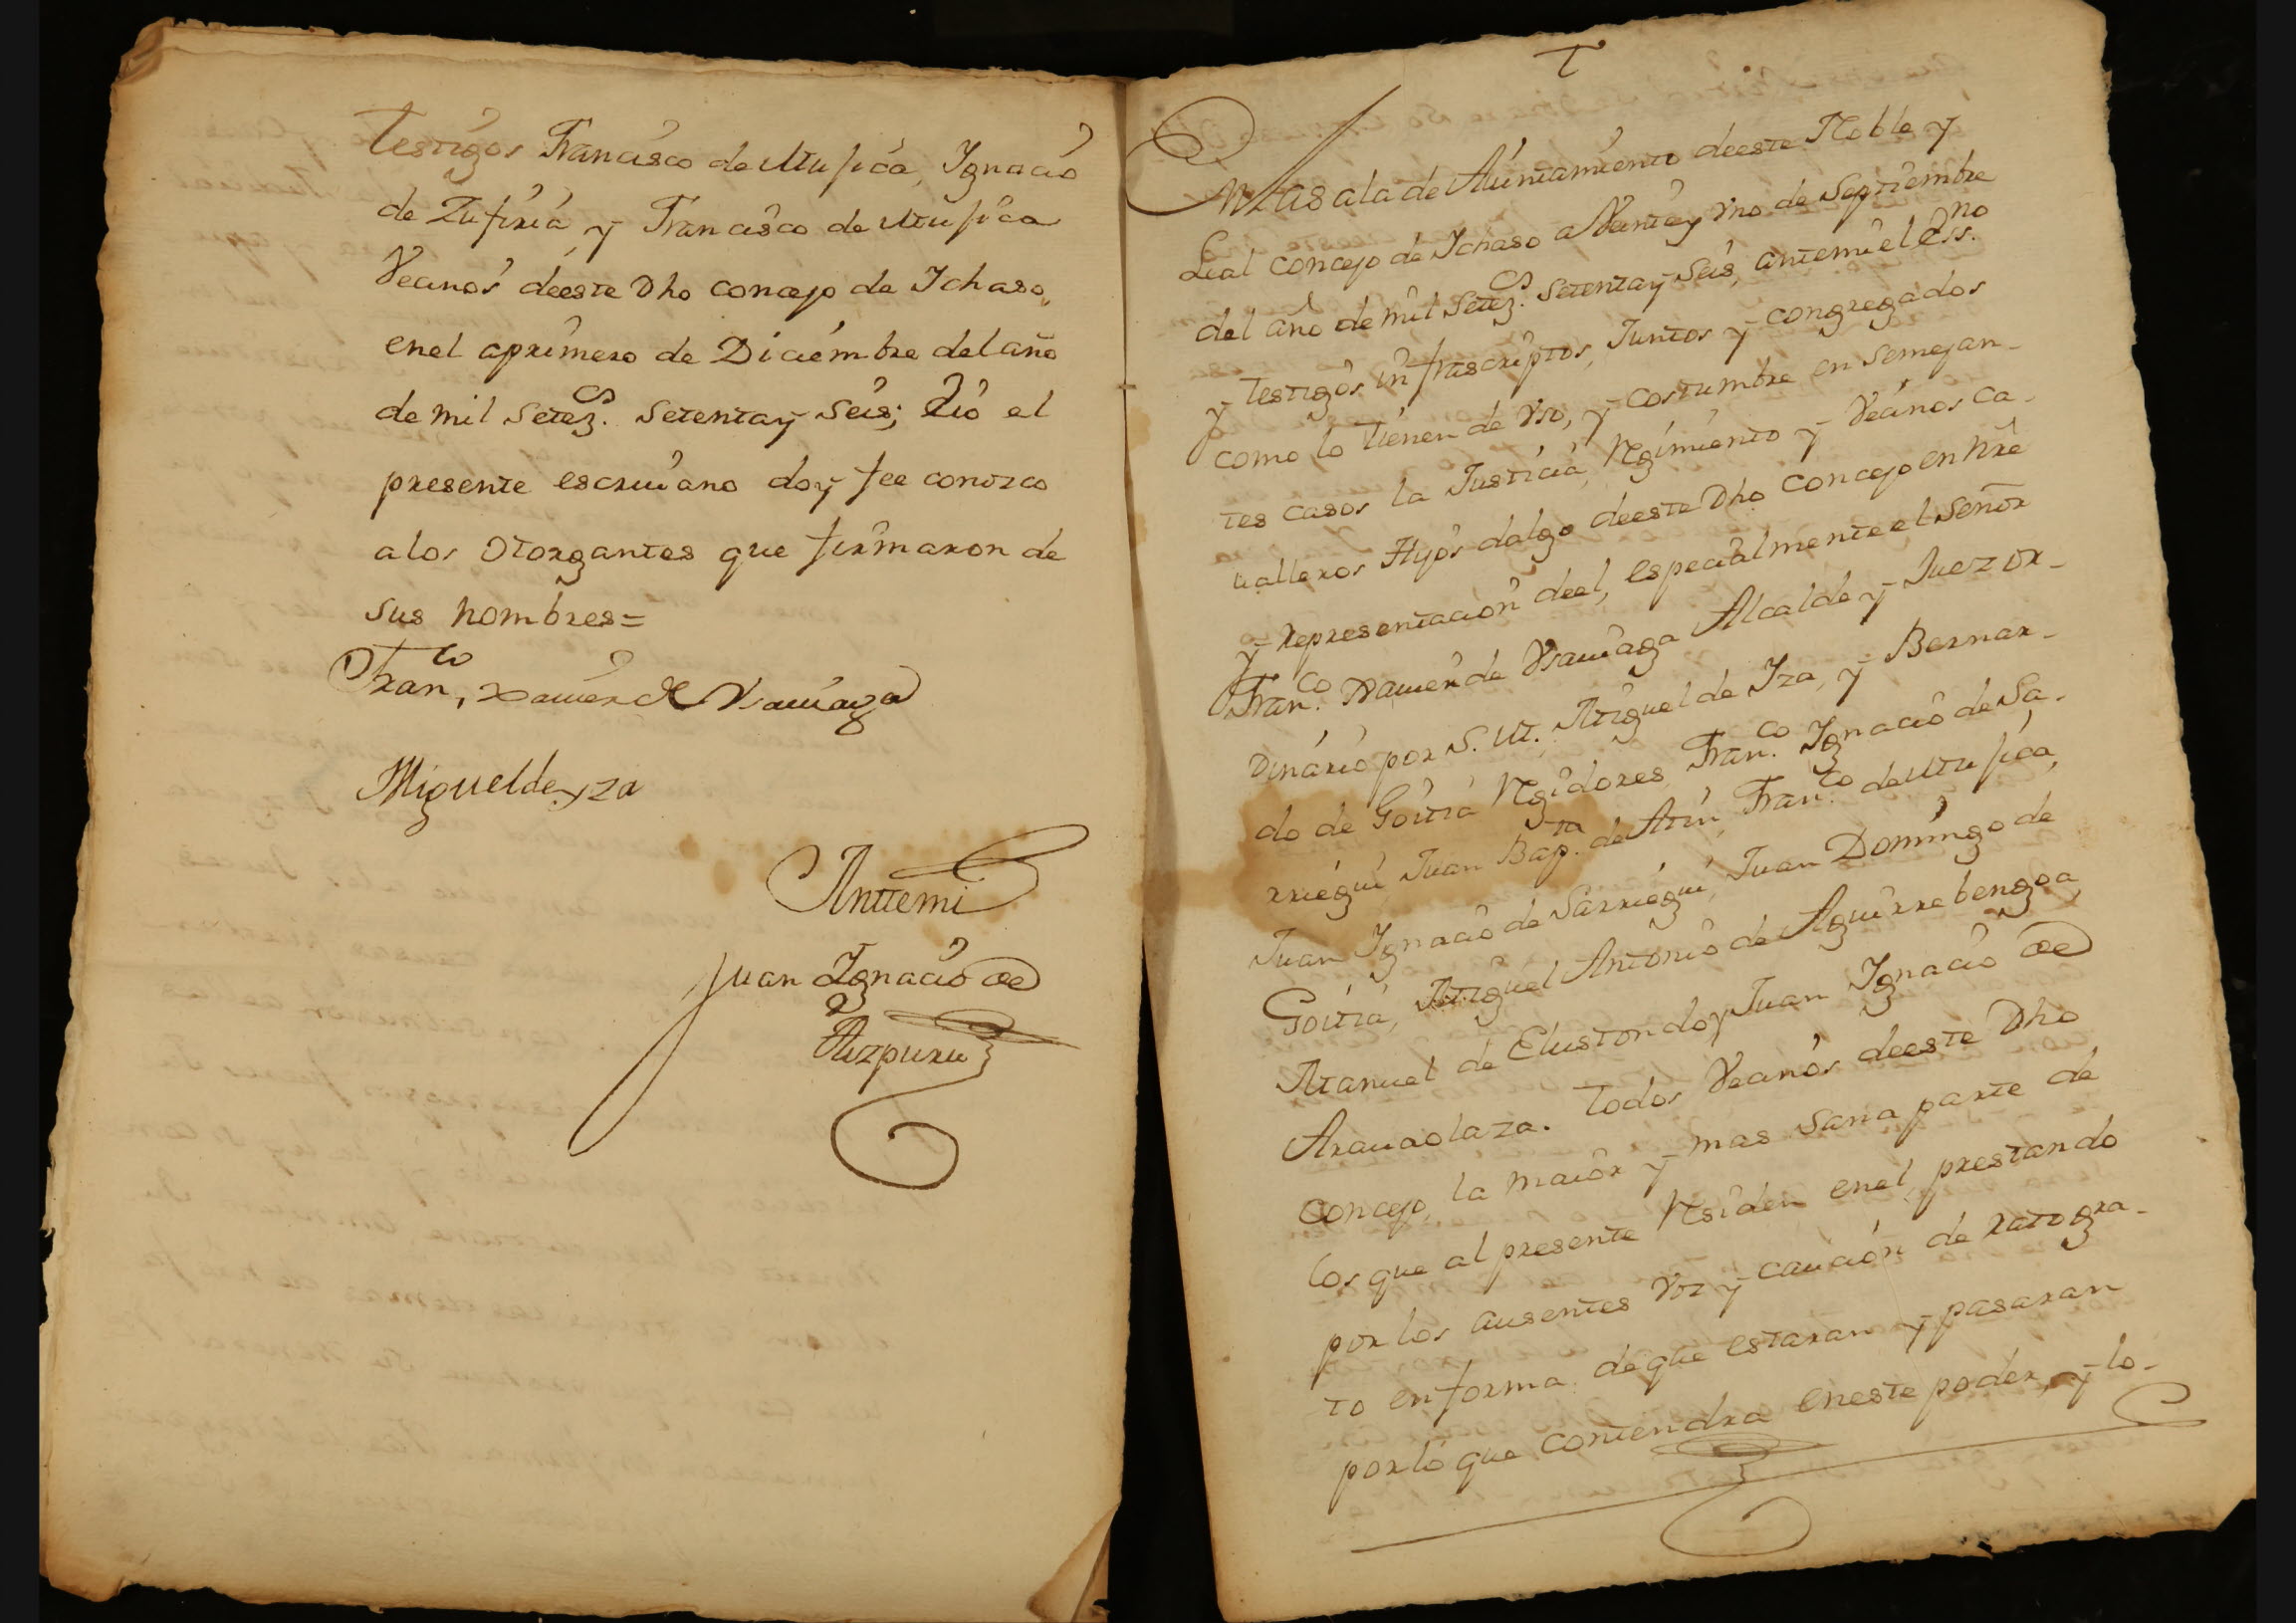 testigos Francisco de Mujica, Ignacio
de Zufiria, y Francisco de Mujica
Vecinos deeste Dho concejo de Ichaso,
enel aprimero de Diciembre del año
de mil Setez.s Setentay Seis; Yo el
presente escriuano doy fee conozco
alos Otorgantes que firmaron de
sus nombres=
Fran.co Xauier de Vsauiaga
Miguel de yza
Anttemi
Juan Ignacio de
Aizpuru
En la Sala de Aiuntamiento deeste Noble y
Leal concejo de Ichaso a Veintey Vno de Septiembre
del año de mil Setez.s Setentay Seis, antemi el Ess.no
y testigos infrascriptos, Juntos y congregados
como lo tienen de Vso, y costumbre en Semejan-
tes casos la Justicia, Regimiento y Vecinos Ca-
ualleros Hijos dalgo deeste Dho Concejo en Nre
y representacion deel, especialmente el Señor
Fran.co Xauier de Vsauiaga Alcalde y Juez or-
Dinario por S. M. Miguel de Iza, y Bernar-
do de Goitia Regidores, Fran.co Ignacio de Sa-
rriegui, Juan Bap.ta de Arin, Fran.co de Mujica,
Juan Ignacio de Sarriegui, Juan Domingo de
Goitia, Miguel Antonio de Aguirrebengoa,
Manuel de Elustondo y Juan Ignacio de
Arauaolaza. todos Vecinos deeste Dho
Concejo, la maior y mas Sana parte de
los que al presente Residen enel, prestando
por los ausentes Voz y caucion de rato gra-
to enforma de que estaran y pasaran
por lo que contendra eneste poder, y lo-